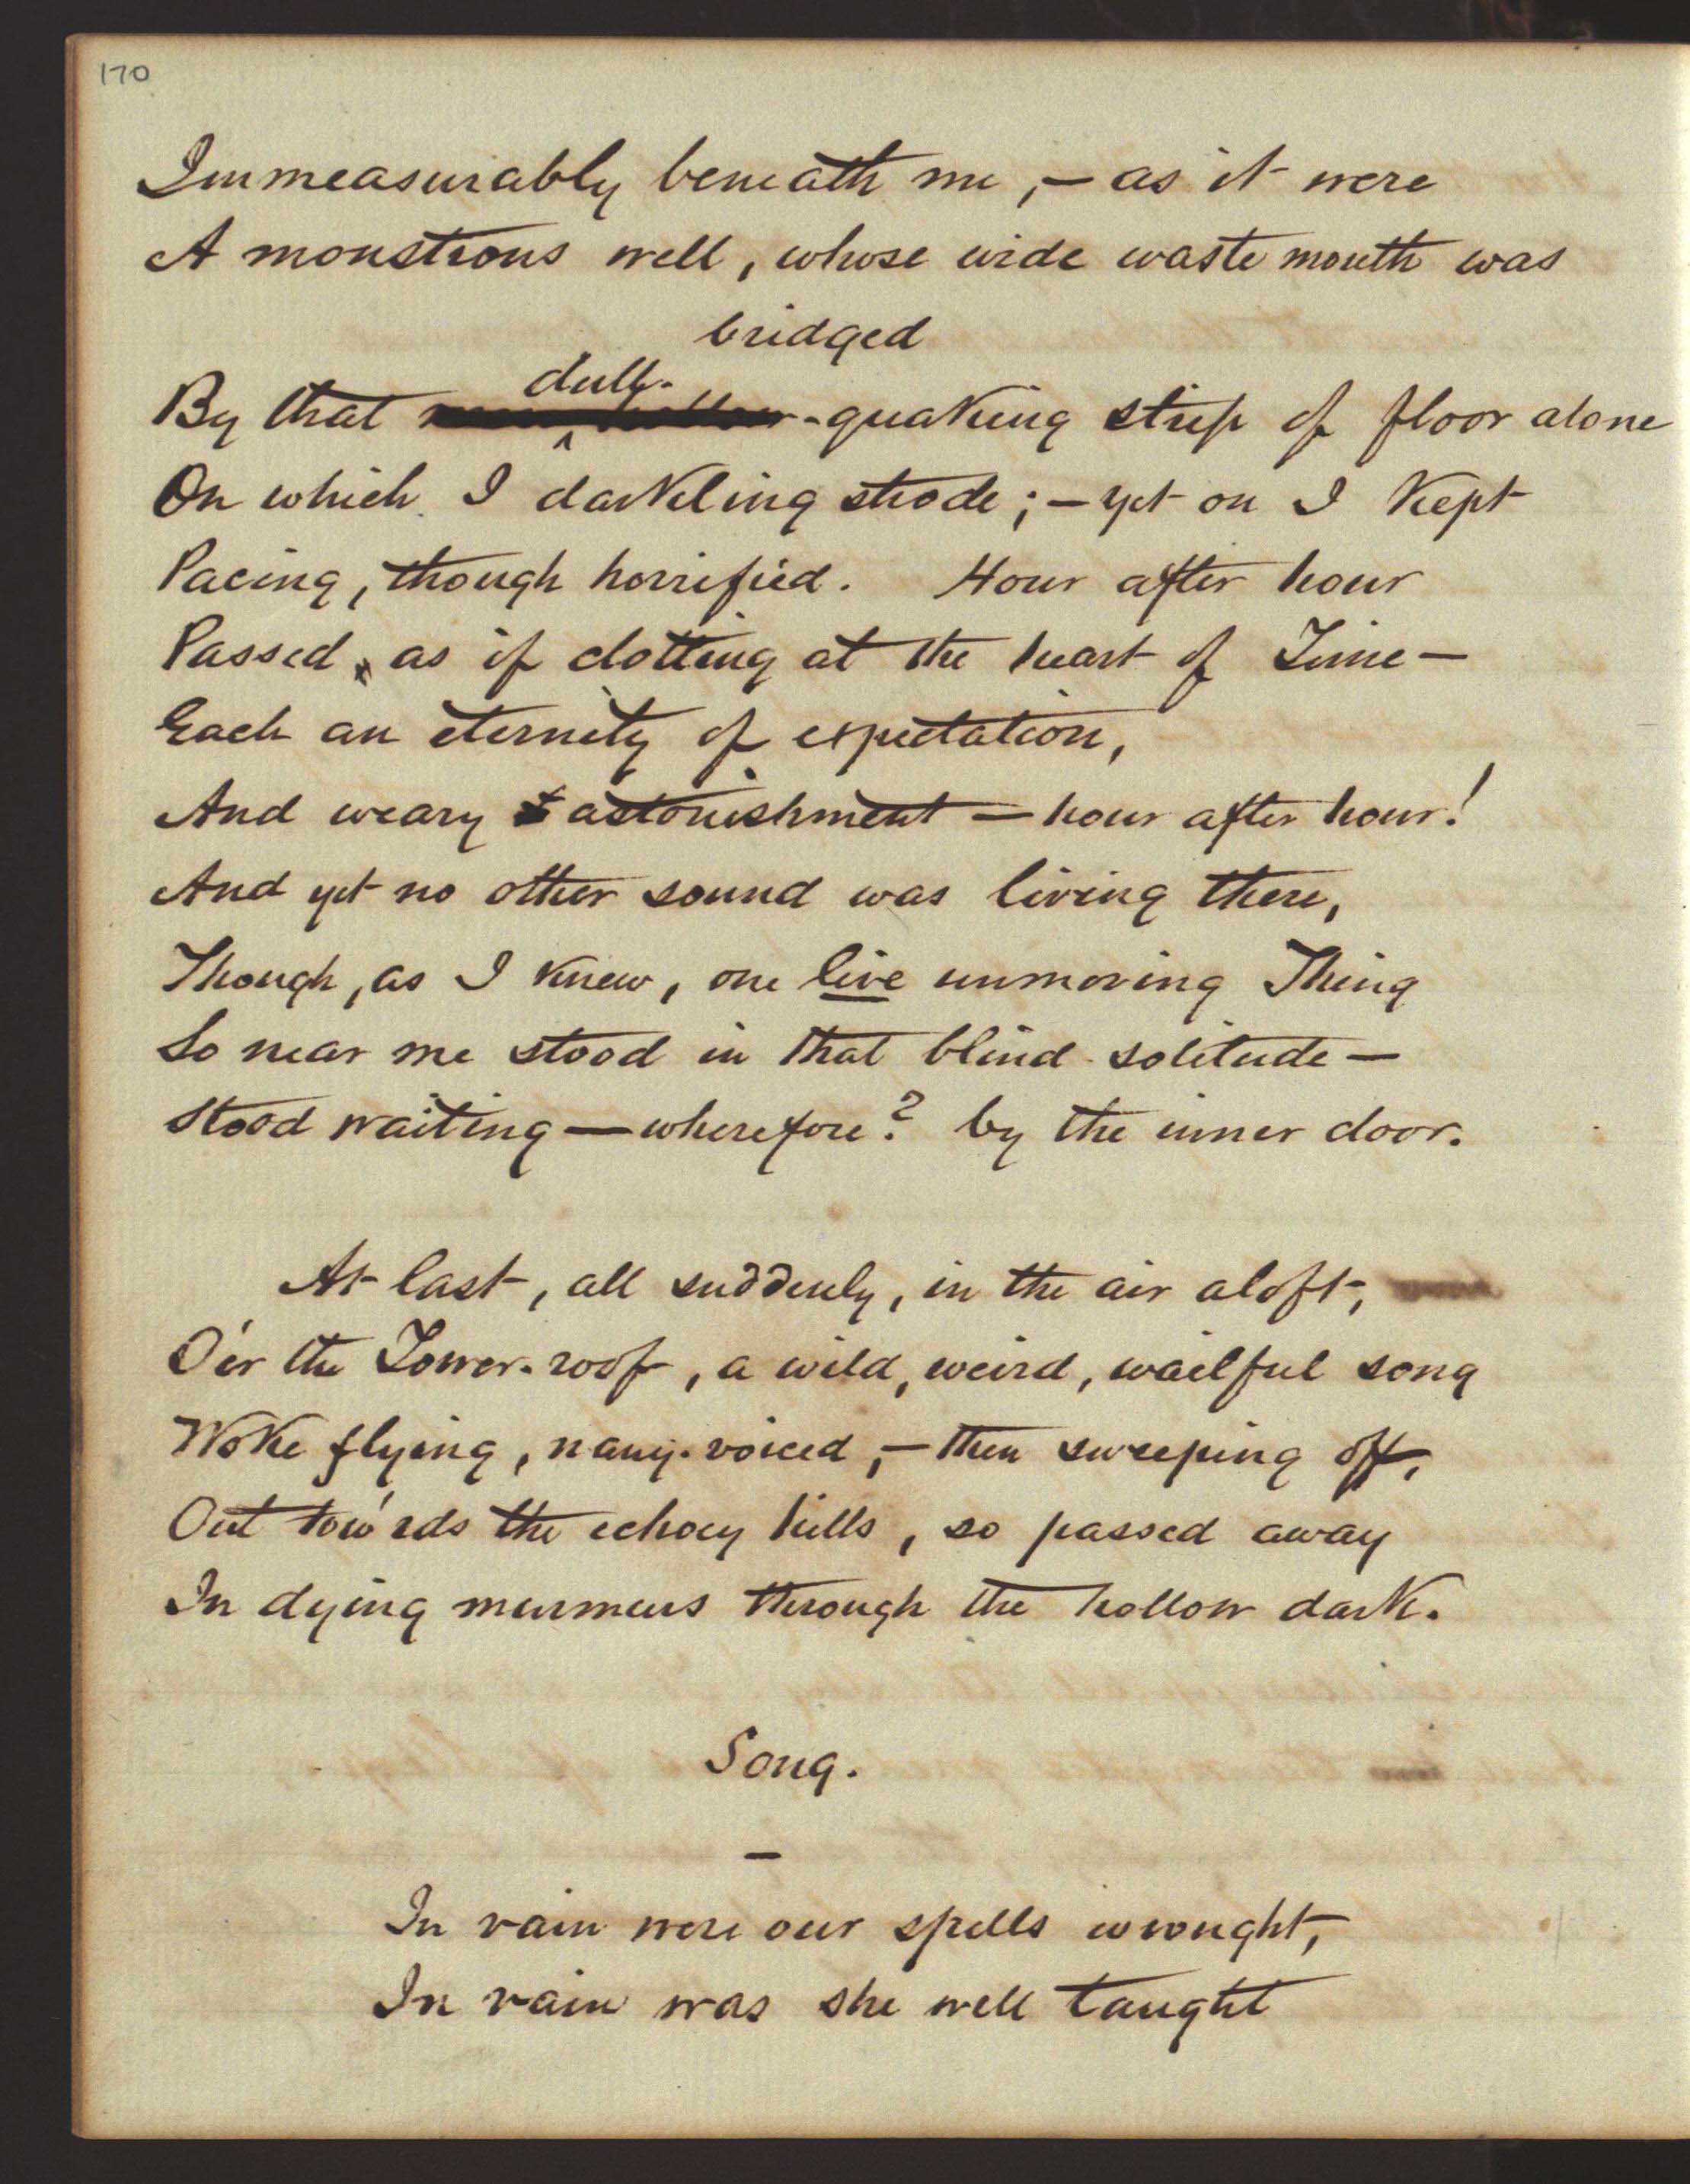 170
Immeasurably beneath me,—as it were
A monstrous well, whose wide waste mouth was
bridged
dull-
By that -quaking strip of floor alone
On which I darkling strode;—yet on I kept
Pacing, though horrified. Hour after hour
Passed, as if clotting at the heart of Time—
Each an eternity of expectation,
And weary astonishment—hour after hour!
And yet no other sound was living there,
Though, as I knew, one live unmoving Thing
So near me stood in that blind solitude—
Stood waiting—wherefore? by the inner door.
At last, all suddenly, in the air aloft,
O'er the Tower-roof, a wild, weird, wailful song
Woke flying, many-voiced,—then sweeping off,
Out tow'rds the echoey hills, so passed away
In dying murmurs through the hollow dark.
Song.
—
In vain were our spells wrought,
In vain was she well taught